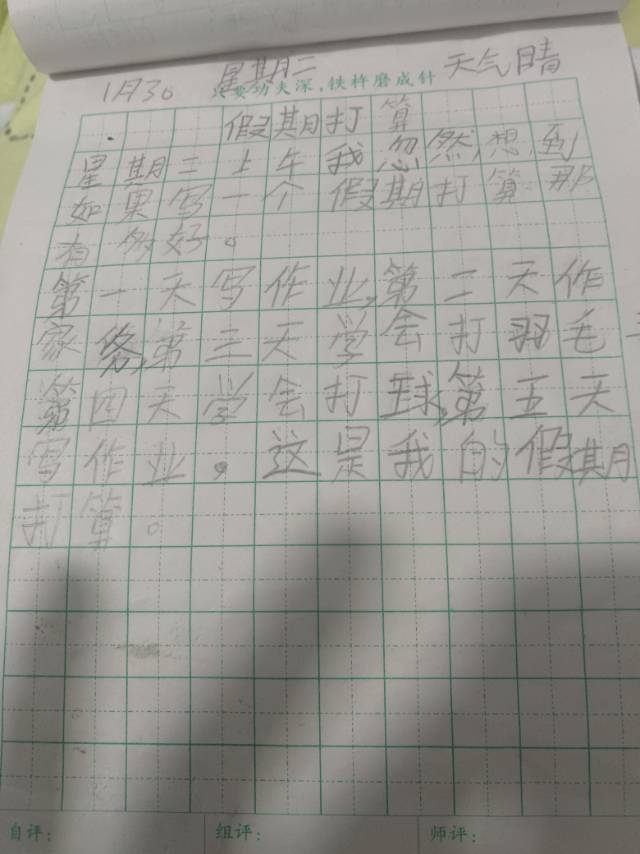 1月30 星期二 天气晴
只要功夫深,铁杵磨成针
假期打算
星期二上午我忽然,想,到
如果写一个假期打算那
有多好。
第一天写作业,第二天作
家务,第三天学会打羽毛
第四天学会打球,第五天
写作业。这是我的假期
打算。
自评: 组评: 师评: